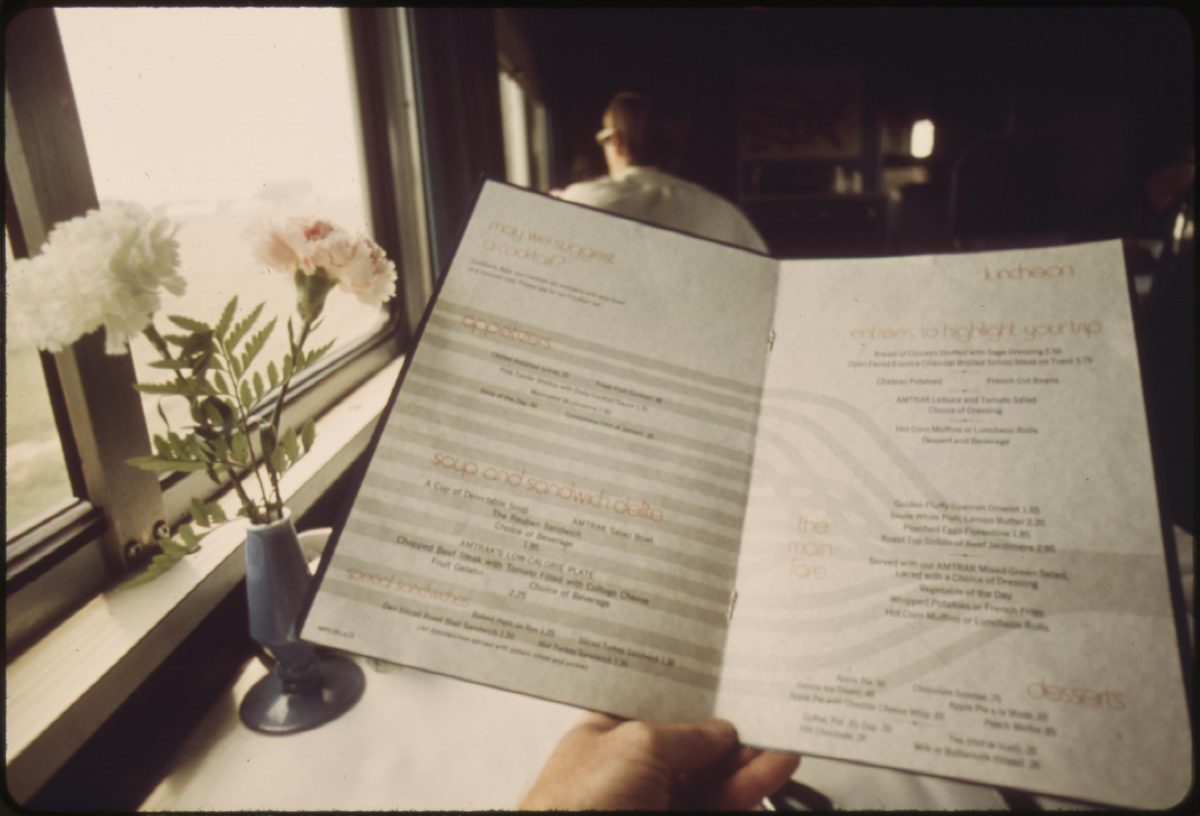 may we suggest
a cocktail?
appetizers
Soup of the Day .50
soup and sandwich delite
A Cup of Delectable Soup
AMTRAK Salad Bowl
The Reuben Sandwich
Choice of Beverage
1.95
AMTRAK'S LOW-CALORIE PLATE
Chopped Beef Steak with Tomato Filled with Cottage Cheese
Fruit Gelatin
Choice of Beverage
2.25
special sandwiches
Baked Ham on Rye 1.25
Deli Sliced Roast Beef Sandwich 1.50
Sliced Turkey Sandwich
Hot Turkey Sandwich
(All Sandwiches served with potato chips and pickle)
luncheon
entrees to highlight your trip
Breast of Chicken Stuffed with Sage Dressing
Open Faced Ounce Charcoal Broiled Sirloin Steak on Toast
Chateau Potatoes
French Cut Beans
AMTRAK Lettuce and Tomato Salad
Choice of Dressing
Hot Corn Muffins or Luncheon Rolls
Dessert and Beverage
the
main
fare
Golden Fluffy Spanish Omelet 1.85
Saute White Fish, Lemon Butter 2.20
Poached Eggs Florentine 1.85
Roast Top Sirloin of Beef Jardiniere 2.95
Served with our AMTRAK Mixed Green Salad,
Laced with a Choice of Dressing
Vegetable of the Day
Whipped Potatoes or French Fries
Hot Corn Muffins or Luncheon Rolls
desserts
Apple Pie
Chocolate Sundae
Apple Pie a la Mode
Apple Pie with Cheddar Cheese Whip
Peach Melba
Coffee, Pot
Hot Chocolate